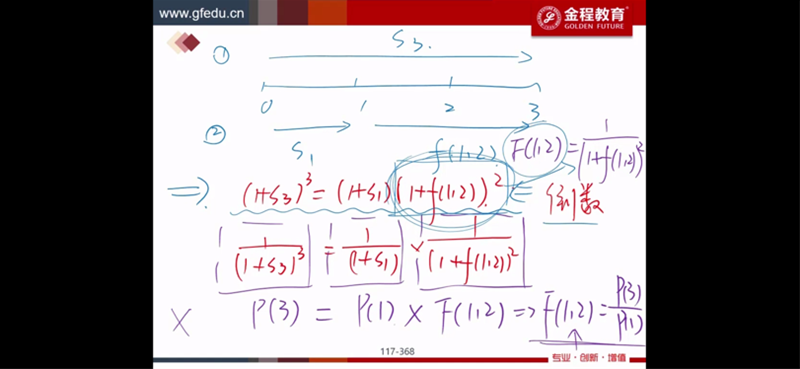 www.gfedu.cn
金程教育
GOLDEN FUTURE
① S3.
0 1 2 3
② S1 f(1,2) F(1,2) = 1/(1+f(1,2))²
⇒ (1+S3)³ = (1+S1)(1+f(1,2))² ⇐ 倒数
1/(1+S3)³ = 1/(1+S1) × 1/(1+f(1,2))²
× P(3) = P(1) × F(1,2) ⇒ F(1,2) = P(3)/P(1)
117-368
专业·创新·增值